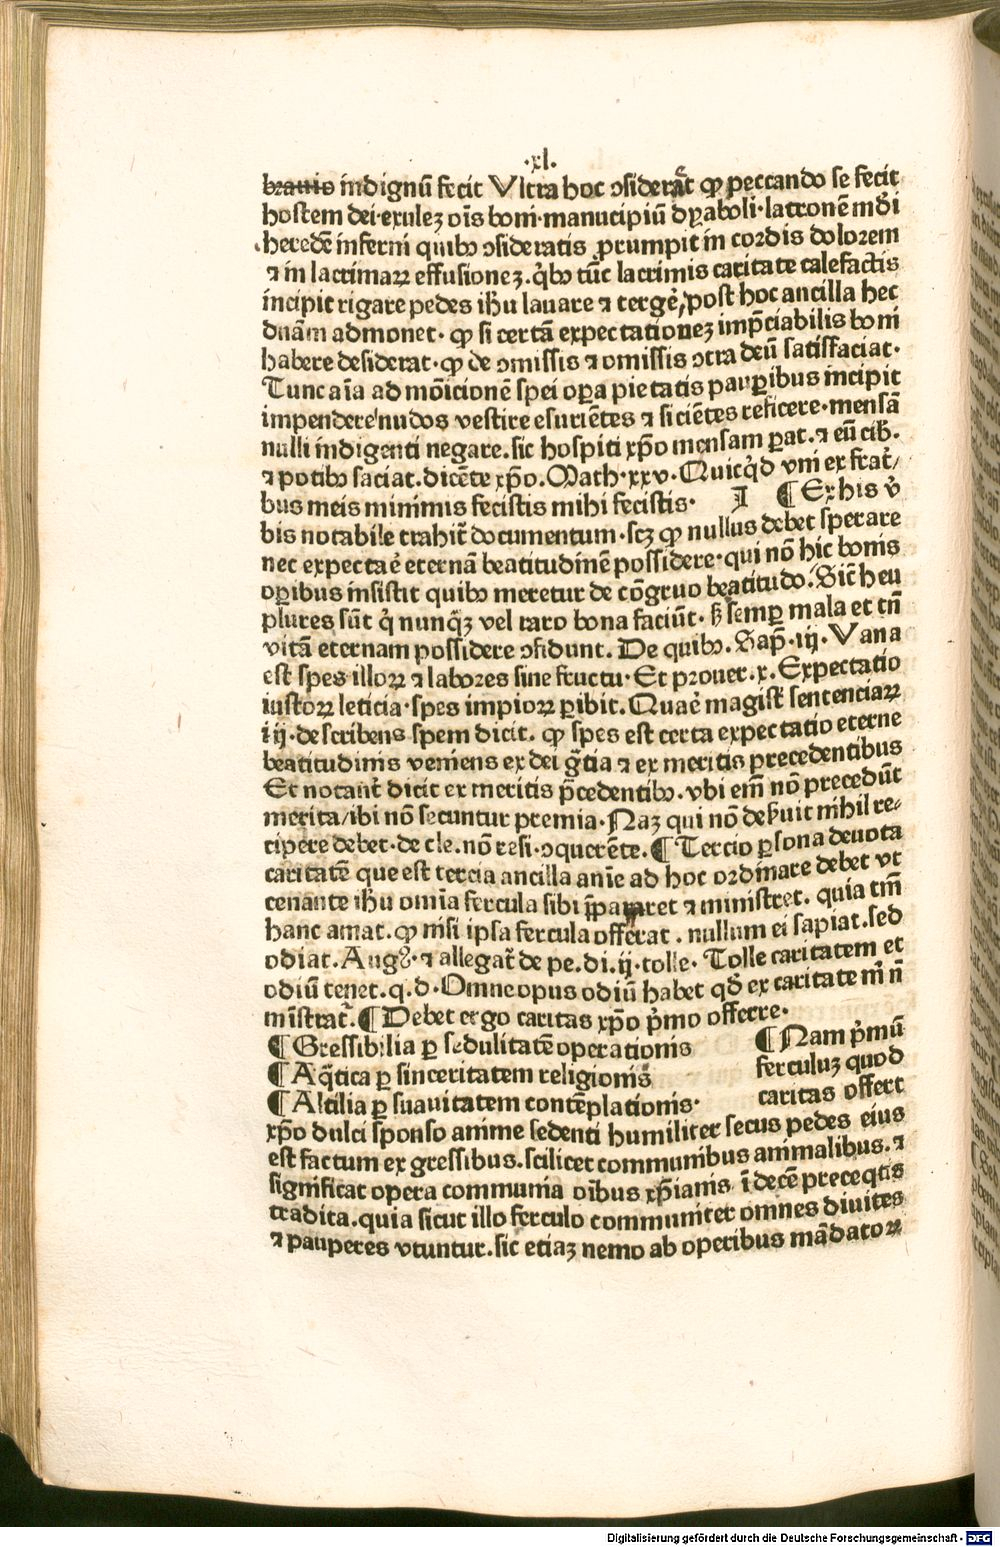 ·xl.
brauio indignū fecit Vltra hoc ↄsiderāt ꝙ peccando se fecit
hostem dei·exulez oīs boni·mancipiū dyaboli·latronē mūdi
heredē inferni quibꝰ ↄsideratis prumpit in cordis dolorem
⁊ in lacrimaꝝ effusionez.q̇bꝰ tūc lacrimis caritate calefactis
incipit rigare pedes ihū lauare ⁊ tergē/post hoc ancilla hec
dnām admonet· ꝙ si certā expectationez imp̄ciabilis boni
habere desiderat·ꝙ de ↄmissis ⁊ omissis ↄtra deū satisfaciat·
Tunc aīa ad mōicionē spei oꝑa pietatis pauꝑibus incipit
impendere nudos vestire esuriētes ⁊ siciētes reficere·mensā
nulli indigenti negare.sic hospiti xp̄o mensam ꝑat.⁊ eū cib̄.
⁊ potibꝰ saciat.dicēte xp̄o.Math·xxv·Quicq̇d vni ex frat̄/
bus meis minimis fecistis mihi fecistis· I ¶Ex his v̄
bis notabile trahit̄ documentum·scz ꝙ nullus debet sperare
nec expectaē eternā beatitudinē possidere·qui nō hic bonis
oꝑibus insistit quibꝰ meretur de cōgruo beatitudo.Sic̄ heu
plures sūt q̇ nunq̄z vel raro bona faciūt·ß semꝑ mala et tn̄
vitā eternam possidere ↄfidunt. De quibꝰ.Sap̄·iij·Vana
est spes illoꝝ ⁊ labores sine fructu·Et prouer.x.Expectatio
iustoꝝ leticia·spes impioꝝ ꝑibit.Quaē magist̄ sentenciaꝝ
iij·describens spem dicit. ꝙ spes est certa expectatio eterne
beatitudinis veniens ex dei gr̄tia ⁊ ex meritis precedentibus
Et notant̄ dicit ex meritis p̄cedentibꝰ.vbi em̄ nō precedūt
merita/ibi nō secuntur premia·Naz qui nō deseruit nihil re⸗
cipere debet·de cle.nō resi·ↄquerēte.¶Tercio ꝑsona deuota
caritatē que est tercia ancilla anīe ad hoc ordinare debet vt
cenante ihū omīa fercula sibi p̄paret ⁊ ministret. quia tm̄
hanc amat.ꝙ nisi ipsa fercula offerat . nullum ei sapiat.sed
odiat.Augꝰ·⁊ allegat̄ de pe.di.ij·tolle· Tolle caritatem et
odiū tenet.q.d·Omne opus odiū habet qd̄ ex caritate nī n̄
mīstrat̄.¶Debet ergo caritas xp̄o p̄mo offerre·
¶Gressibilia ꝑ sedulitatē operationis ¶Nam p̄mū
¶Aq̄tica ꝑ sinceritatem religionis ferculuz quod
¶Altilia ꝑ suauitatem contēplationis· caritas offert
xp̄o dulci sponso anime sedenti humiliter secus pedes eius
est factum ex gressibus.scilicet communibus animalibus.⁊
significat opera communia oībus xp̄ianis ī decē preceptis
tradita.quia sicut illo ferculo communiter omnes diuites
⁊ pauperes vtuntur.sic etiaz nemo ab operibus mādatoꝝ
Digitalisierung gefördert durch die Deutsche Forschungsgemeinschaft · DFG